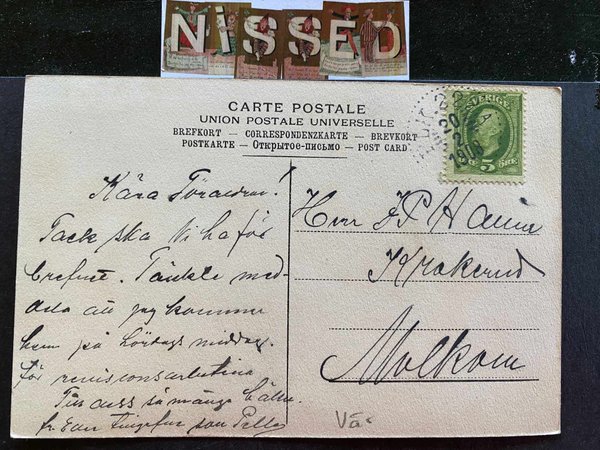 NiSSED
CARTE POSTALE
UNION POSTALE UNIVERSELLE
BREFKORT — CORRESPONDENZKARTE — BREVKORT
POSTKARTE — Открытое-письмо — POST CARD
SVERIGE
5 ÖRE
20
2
1908
Kära Föräldrar!
Tack ska Ni ha för
brefvet. Tänkte med-
dela att jag kommer
hem på Lördags middag.
för
Tills dess så många häls.
fr. Eder son Pelle
Herr JP
Molkom
Vä